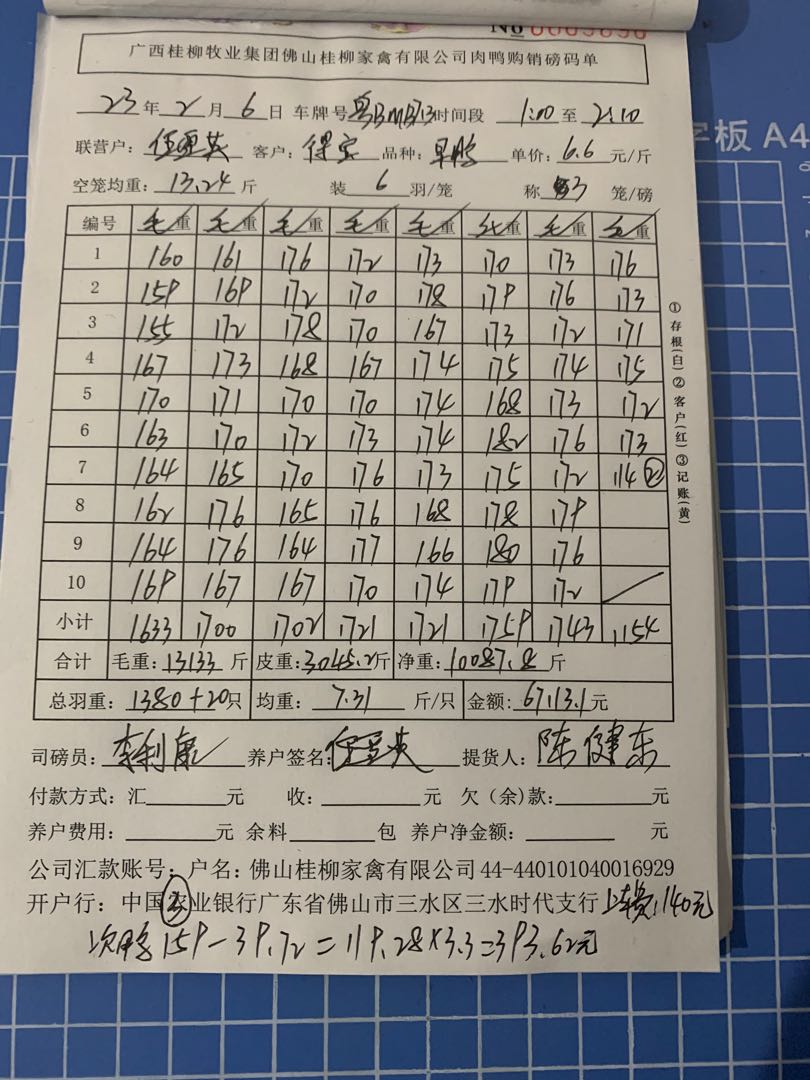 No
广西桂柳牧业集团佛山桂柳家禽有限公司肉鸭购销磅码单
23 年 2 月 6 日 车牌号 时间段 1:00 至 2:10
联营户: 客户: 得宝 品种: 早鸭 单价: 6.6 元/斤
空笼均重: 13.24 斤 装 6 羽/笼 称 3 笼/磅
编号 毛/重 毛/重 毛/重 毛/重 毛/重 毛/重 毛/重 毛/重
1 160 161 176 172 173 170 173 176
2 159 169 172 170 178 179 176 173
3 155 172 178 170 167 173 172 171
4 167 173 168 167 174 175 174 175
5 170 171 170 170 174 168 173 172
6 163 170 172 173 174 182 176 173
7 164 165 170 176 173 175 172 114 ②
8 162 176 165 176 168 178 179
9 164 176 164 177 166 180 176
10 169 167 167 170 174 179 172
小计 1633 1700 1702 1721 1721 1759 1743 1154
合计 毛重: 13133 斤 皮重: 3045.2 斤 净重: 10087.8 斤
总羽重: 1380+20 只 均重: 7.31 斤/只 金额: 67113.1 元
司磅员: 李利康 养户签名: 提货人: 陈健东
付款方式: 汇 元 收: 元 欠(余)款: 元
养户费用: 元 余料 包 养户净金额: 元
公司汇款账号: 户名: 佛山桂柳家禽有限公司 44-440101040016929
开户行: 中国农业银行广东省佛山市三水区三水时代支行 上车费: 140元
次鸭 159-39.72=119.28×3.3=393.62元
①存根(白)②客户(红)③记账(黄)
字板 A4